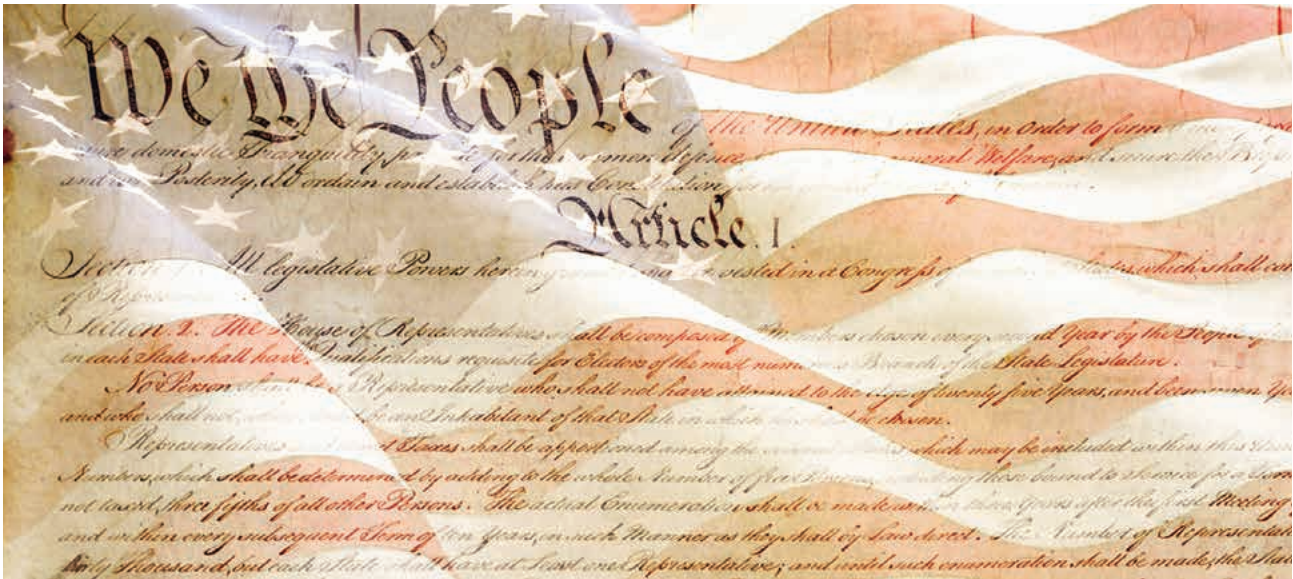 We the People
of the United States, in Order to form
sure domestic Tranquility, for the common defence, General Welfare, and secure the
and our Posterity, do ordain and establish this Constitution for
Article. I.
Section 1. All legislative Powers herein vested in a Congress of States, which shall con
of Represen
Section. 2. The House of Representatives shall be composed of Members chosen every second Year by the People of
in each State shall have Qualifications requisite for Electors of the most numerous Branch of the State Legislature.
No Person shall be a Representative who shall not have attained to the Age of twenty five Years, and been seven Yea
and who shall not, when elected, be an Inhabitant of that State in which he shall be chosen.
Representatives and direct Taxes shall be apportioned among the several States which may be included within this Union
Numbers, which shall be determined by adding to the whole Number of free Persons, including those bound to Service for a Term
not taxed, three fifths of all other Persons. The actual Enumeration shall be made within three Years after the first Meeting
and within every subsequent Term of ten Years, in such Manner as they shall by Law direct. The Number of Representat
thirty Thousand, but each State shall have at Least one Representative; and until such enumeration shall be made, the State